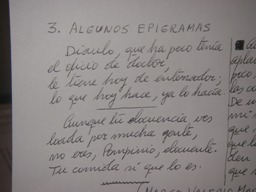 3. ALGUNOS EPIGRAMAS
Diaulo, que ha poco tenía
el oficio de doctor,
le tiene hoy de enterrador;
lo que hoy hace, ya lo hacía.
Aunque tu elocuencia ves
loada por mucha gente,
no eres, Pomponio, elocuente.
Tu comida sí que lo es.